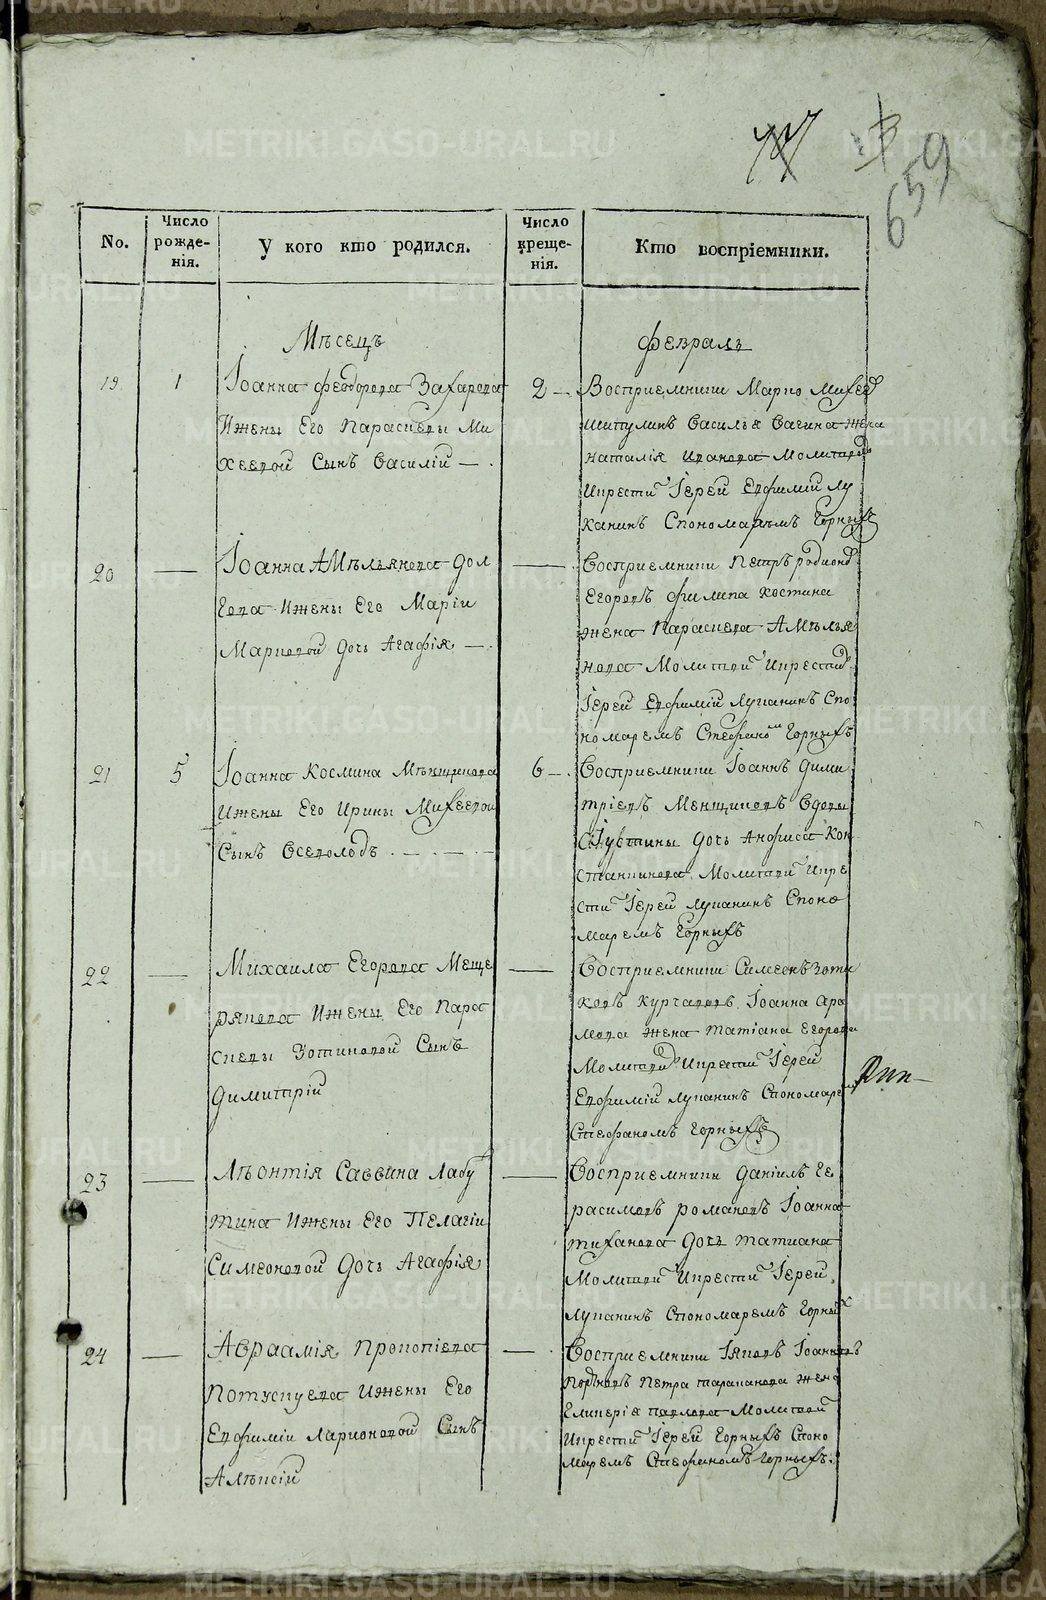 659
No.
Число рожде-нія.
У кого кто родился.
Число креще-нія.
Кто воспріемники.
Мѣсецъ
февраль
19
1
Іоанна феодорова Захарова
Ижены Его Параскевы Ми
хеевой Сынъ Василій — .
2 —
Восприемники Марко Михеев
Шипулинъ Василья Вагина жена
наталія Иванова Молитвов
Икрести Іерей Евфимій Лу
канинъ Спономаремъ Горныхъ
20
Іоанна Амѣльянова Дол
гова Ижены Его Маріи
Марковой Дочь Агафія — .
Восприемники Петръ родионов
Егоровъ филипа костина
жена Параскева Амѣлья
нова Молитвой Икрестив
Іерей Евфимій Луканинъ Спо
номаремъ Стефаном Горныхъ
21
5
Іоанна Космина Мѣнщикова
Ижены Его Ирины Михеевой
Сынъ Всеволодъ . — . — . —
6 — .
Восприемники Іоаннъ Дими
тріевъ Менщиковъ Вдовы
Іустины Дочь Анфиса Кон
стантинова Молитвой Икре
сти Іерей Луканинъ Споно
маремъ Горныхъ
22
Михаила Егорова Меще
рякова Ижены Его Пара
скевы Зотиковой Сынъ
Димитрій
Восприемники Симеонъ Зоти
ковъ Курчавовъ Іоанна Ара
мова жена татіана Егорова
Молитвой Икрести Іерей
Евфимій Луканинъ Спономарем
Стефаномъ Горныхъ
23
Лѣонтія Саввина Лабу
тина Ижены Его Пелагіи
Симеоновой Дочь Агафія
Восприемники Даніилъ Ге
расимовъ романовъ Іоанна
тиханова Дочь татиана
Молитвой Икрести Іерей
Луканинъ Спономаремъ Горных
24
Авраамія Прокопіева
Потускуева Ижены Его
Евфиміи Ларионовой Сынъ
Алѣксій
Восприемники Іяковъ Іоанновъ
Петра тараканова жена
Гликерія павлова Молитвой
Икрести Іерей Горныхъ Споно
маремъ Стефаномъ Горныхъ.
METRIKI.GASO-URAL.RU